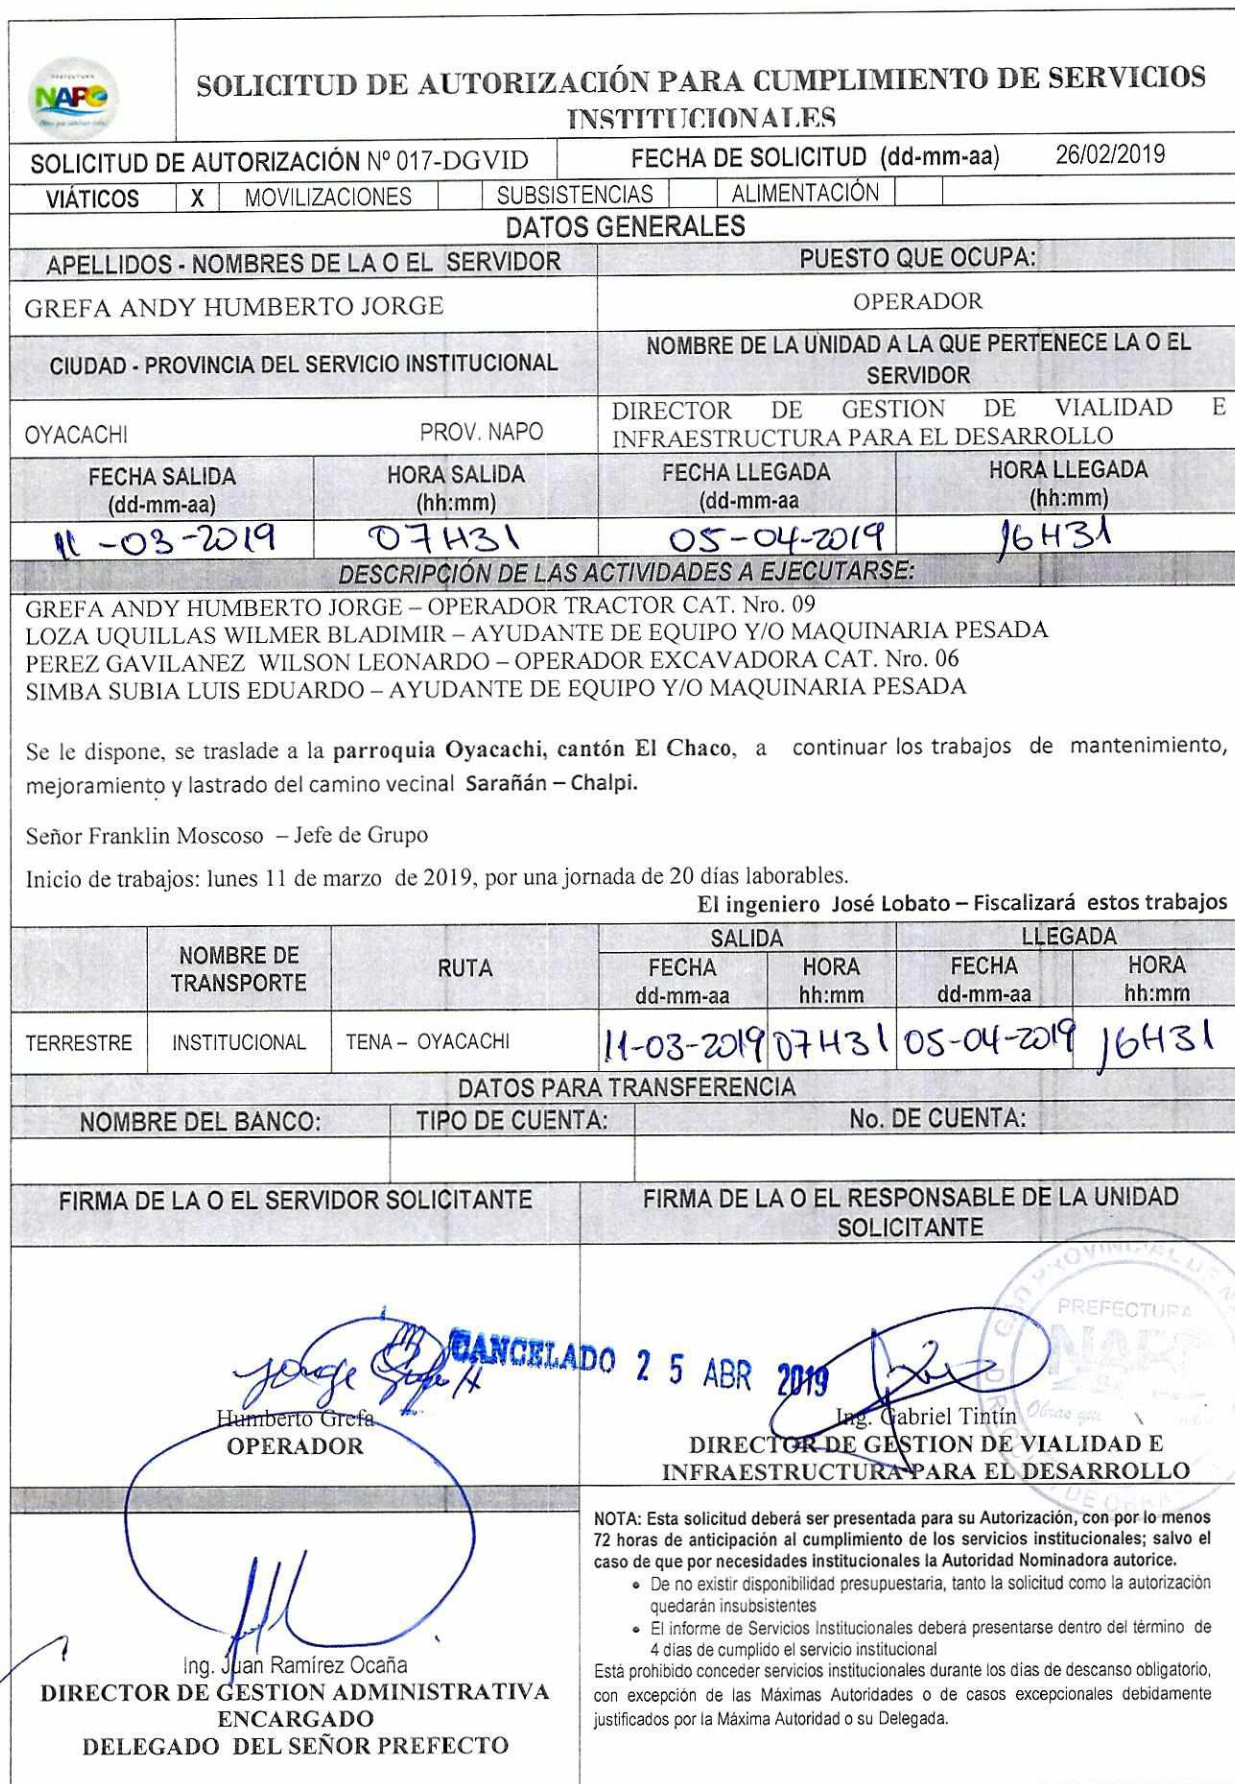 PREFECTURA
NAPO
SOLICITUD DE AUTORIZACIÓN PARA CUMPLIMIENTO DE SERVICIOS
INSTITUCIONALES
SOLICITUD DE AUTORIZACIÓN Nº 017-DGVID FECHA DE SOLICITUD (dd-mm-aa) 26/02/2019
VIÁTICOS X MOVILIZACIONES SUBSISTENCIAS ALIMENTACIÓN
DATOS GENERALES
APELLIDOS - NOMBRES DE LA O EL SERVIDOR PUESTO QUE OCUPA:
GREFA ANDY HUMBERTO JORGE OPERADOR
CIUDAD - PROVINCIA DEL SERVICIO INSTITUCIONAL NOMBRE DE LA UNIDAD A LA QUE PERTENECE LA O EL
SERVIDOR
OYACACHI PROV. NAPO DIRECTOR DE GESTION DE VIALIDAD E
INFRAESTRUCTURA PARA EL DESARROLLO
FECHA SALIDA HORA SALIDA FECHA LLEGADA HORA LLEGADA
(dd-mm-aa) (hh:mm) (dd-mm-aa (hh:mm)
11-03-2019 07H31 05-04-2019 16H31
DESCRIPCIÓN DE LAS ACTIVIDADES A EJECUTARSE:
GREFA ANDY HUMBERTO JORGE – OPERADOR TRACTOR CAT. Nro. 09
LOZA UQUILLAS WILMER BLADIMIR – AYUDANTE DE EQUIPO Y/O MAQUINARIA PESADA
PEREZ GAVILANEZ WILSON LEONARDO – OPERADOR EXCAVADORA CAT. Nro. 06
SIMBA SUBIA LUIS EDUARDO – AYUDANTE DE EQUIPO Y/O MAQUINARIA PESADA
Se le dispone, se traslade a la parroquia Oyacachi, cantón El Chaco, a continuar los trabajos de mantenimiento,
mejoramiento y lastrado del camino vecinal Sarañán – Chalpi.
Señor Franklin Moscoso – Jefe de Grupo
Inicio de trabajos: lunes 11 de marzo de 2019, por una jornada de 20 días laborables.
El ingeniero José Lobato – Fiscalizará estos trabajos
SALIDA LLEGADA
NOMBRE DE TRANSPORTE RUTA FECHA dd-mm-aa HORA hh:mm FECHA dd-mm-aa HORA hh:mm
TERRESTRE INSTITUCIONAL TENA – OYACACHI 11-03-2019 07H31 05-04-2019 16H31
DATOS PARA TRANSFERENCIA
NOMBRE DEL BANCO: TIPO DE CUENTA: No. DE CUENTA:
FIRMA DE LA O EL SERVIDOR SOLICITANTE FIRMA DE LA O EL RESPONSABLE DE LA UNIDAD
SOLICITANTE
GAD PROVINCIAL DE
PREFECTURA
NAPO
Jorge Grefa
CANCELADO 25 ABR 2019
Humberto Grefa
OPERADOR
Ing. Gabriel Tintín
DIRECTOR DE GESTION DE VIALIDAD E
INFRAESTRUCTURA PARA EL DESARROLLO
Ing. Juan Ramírez Ocaña
DIRECTOR DE GESTION ADMINISTRATIVA
ENCARGADO
DELEGADO DEL SEÑOR PREFECTO
NOTA: Esta solicitud deberá ser presentada para su Autorización, con por lo menos
72 horas de anticipación al cumplimiento de los servicios institucionales; salvo el
caso de que por necesidades institucionales la Autoridad Nominadora autorice.
• De no existir disponibilidad presupuestaria, tanto la solicitud como la autorización
quedarán insubsistentes
• El informe de Servicios Institucionales deberá presentarse dentro del término de
4 días de cumplido el servicio institucional
Está prohibido conceder servicios institucionales durante los días de descanso obligatorio,
con excepción de las Máximas Autoridades o de casos excepcionales debidamente
justificados por la Máxima Autoridad o su Delegada.